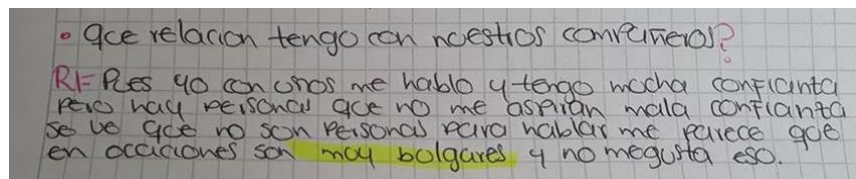 • Que relacion tengo con nuestros compañeros?
R/= Pues yo con unos me hablo y tengo mucha confianta
pero hay personas que no me aspiran mala confianta
se ve que no son personas para hablar me parece que
en occaciones son muy bulgares y no megusta eso.